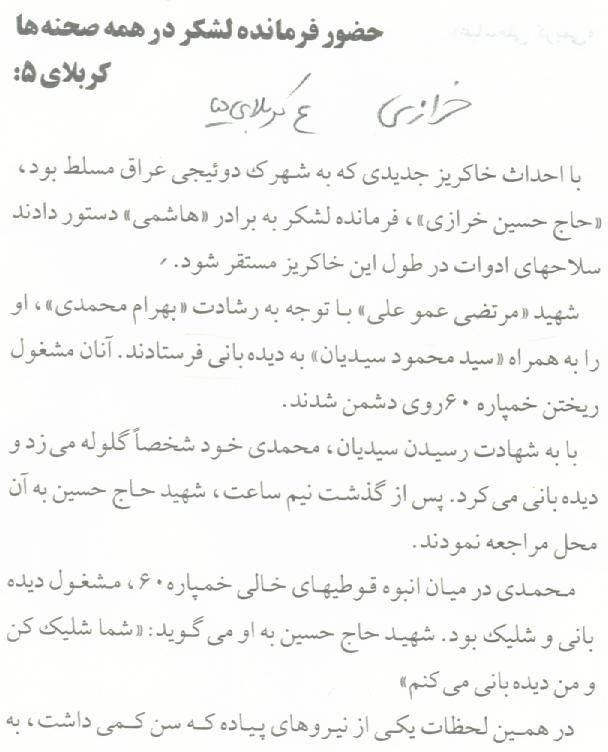 حضور فرمانده لشکر در همه صحنه‌ها
کربلای ۵:
خرازی ع کربلای
با احداث خاکریز جدیدی که به شهرک دوئیجی عراق مسلط بود،
«حاج حسین خرازی»، فرمانده لشکر به برادر «هاشمی» دستور دادند
سلاحهای ادوات در طول این خاکریز مستقر شود.
شهید «مرتضی عمو علی» با توجه به رشادت «بهرام محمدی»، او
را به همراه «سید محمود سیدیان» به دیده‌بانی فرستادند. آنان مشغول
ریختن خمپاره ۶۰ روی دشمن شدند.
با به شهادت رسیدن سیدیان، محمدی خود شخصاً گلوله می‌زد و
دیده‌بانی می‌کرد. پس از گذشت نیم ساعت، شهید حاج حسین به آن
محل مراجعه نمودند.
محمدی در میان انبوه قوطیهای خالی خمپاره ۶۰، مشغول دیده
بانی و شلیک بود. شهید حاج حسین به او می‌گوید: «شما شلیک کن
و من دیده‌بانی می‌کنم»
در همین لحظات یکی از نیروهای پیاده که سن کمی داشت، به